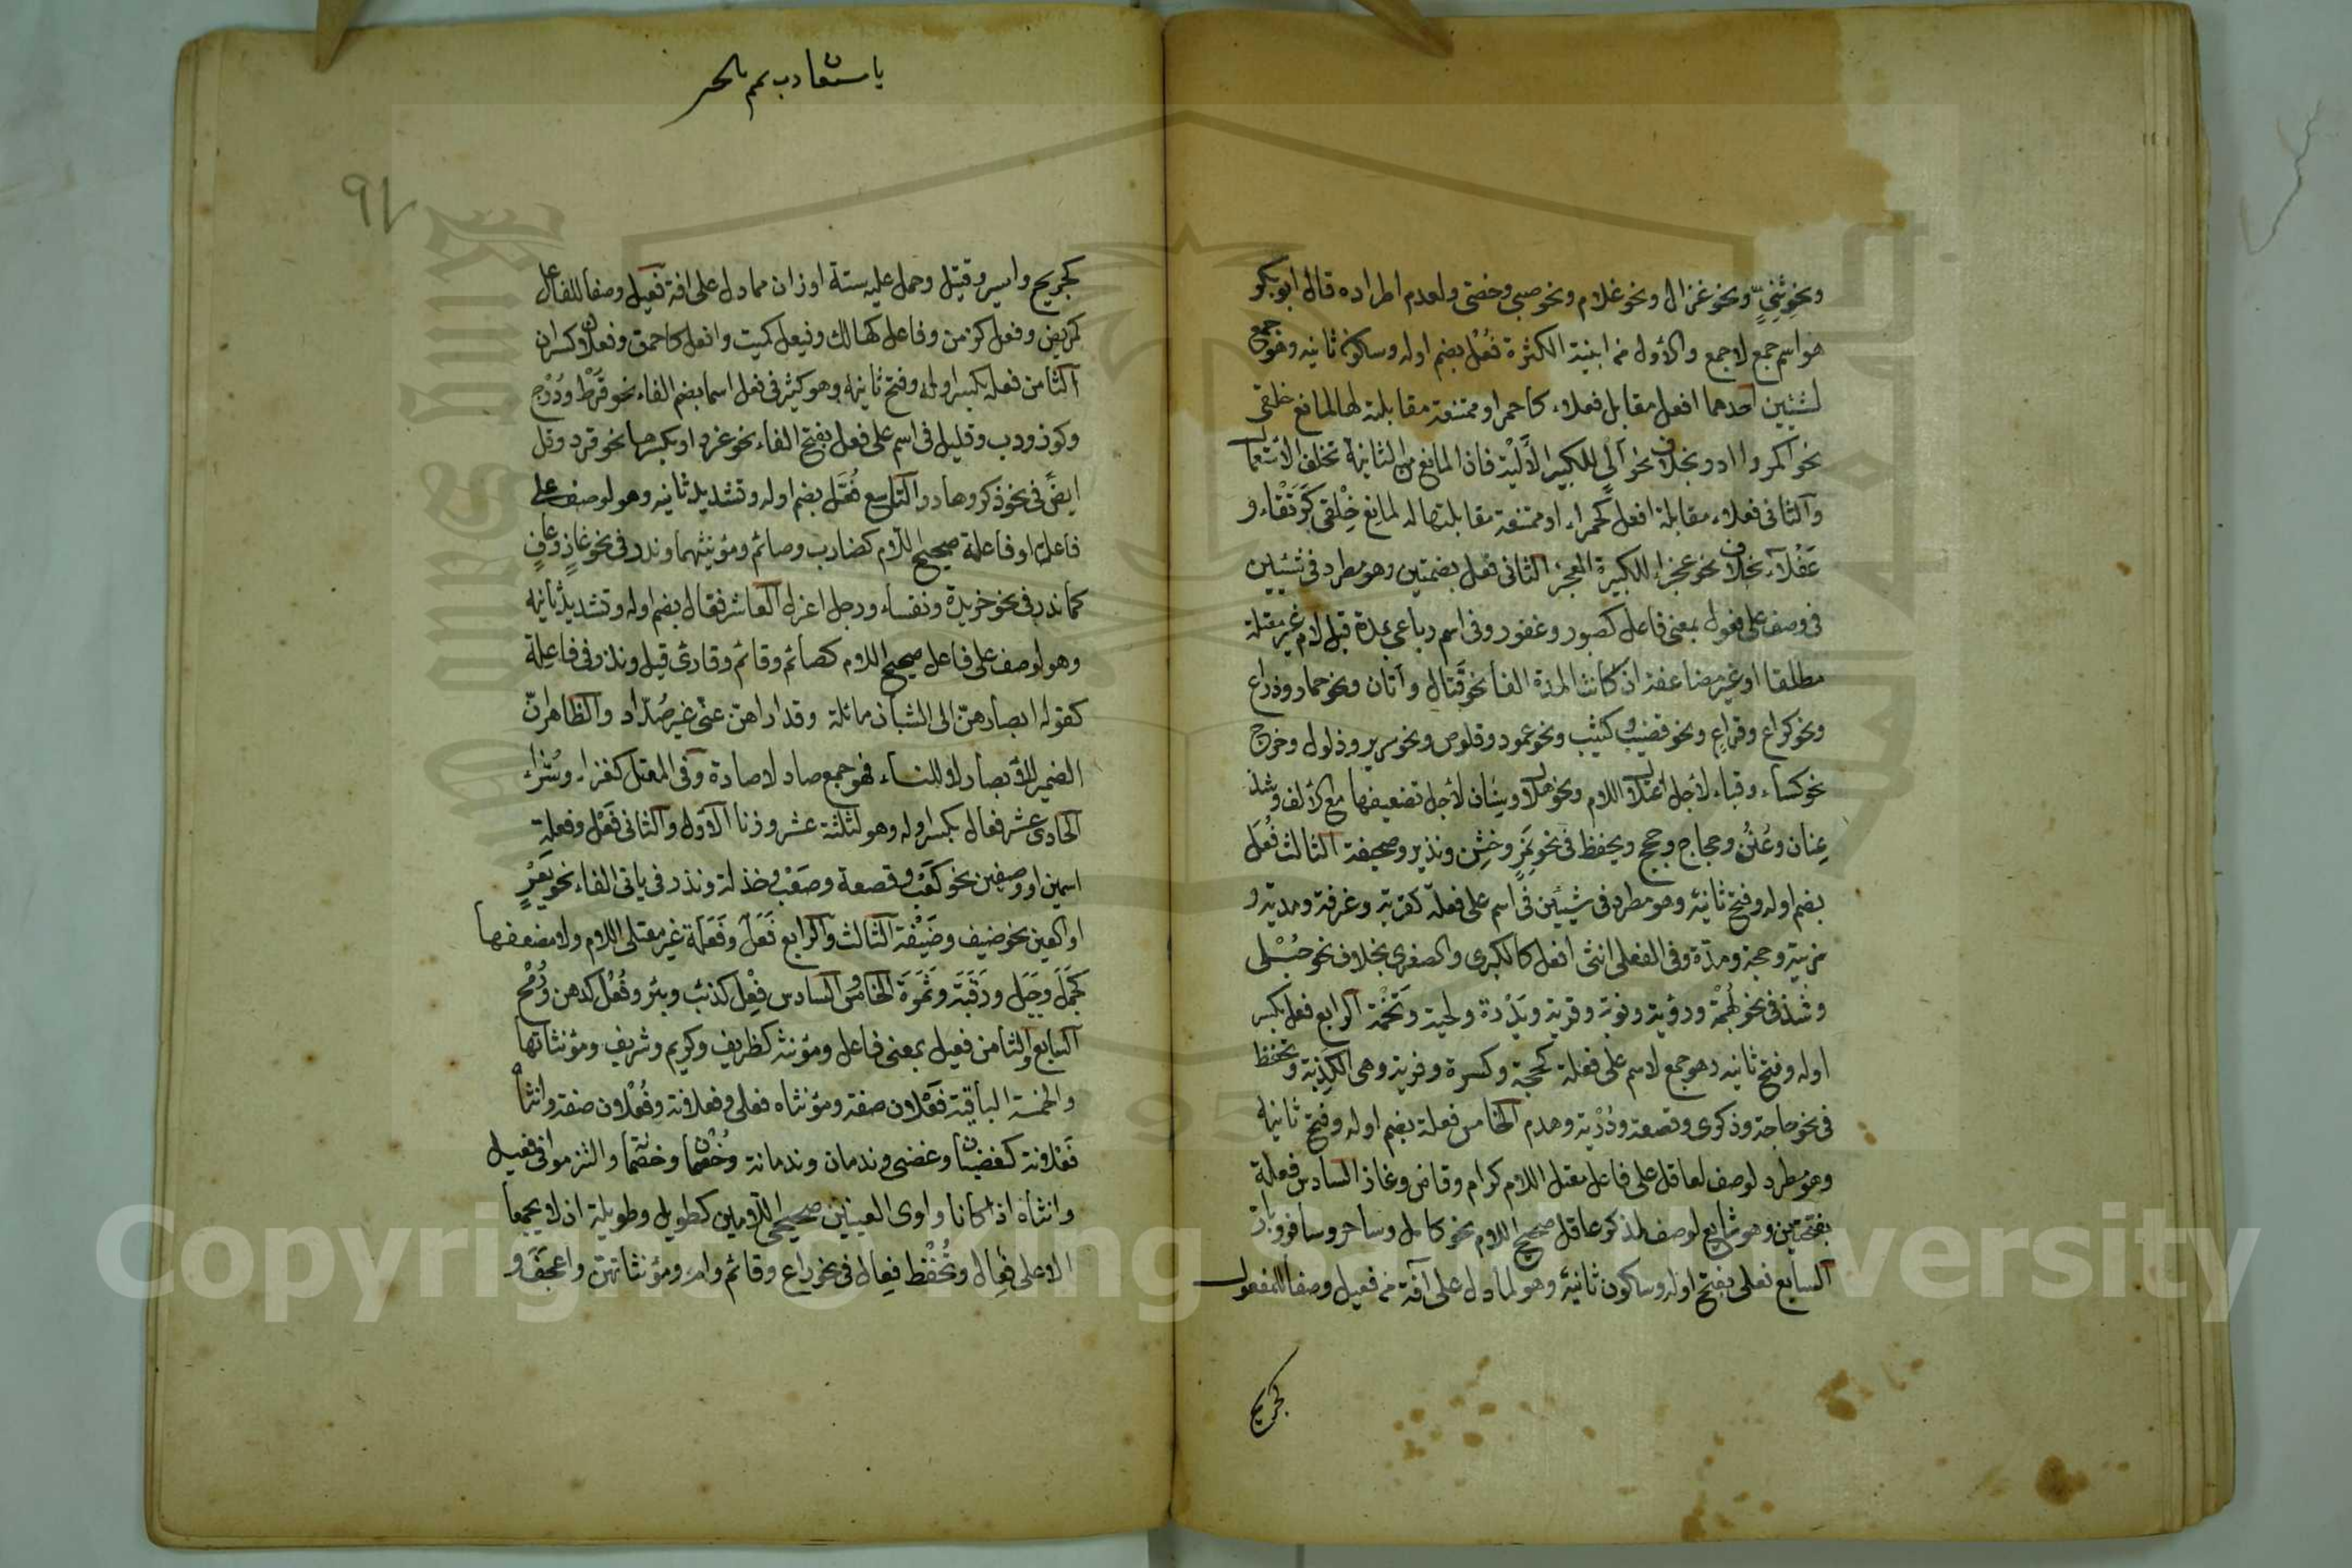 ونحو ثِنًى ونحو غزال ونحو غلام ونحو صبى وخصى ولعدم اطراده قال ابو بكر
هو اسم جمع لا جمع والاول من ابنية الكثرة فُعْل بضم اوله وسكون ثانيه وهو جمع
لشيئين احدهما افعل مقابل فعلاء كاحمر او ممتنعة مقابلته لها لمانع خلقى
نحو اكمر وادر بخلاف نحو آلى للكبير الالية فان المانع من الثانية تخلف الاستعمال
والثانى فعلاء مقابلة افعل كحمراء او ممتنعة مقابلتها له لمانع خلقى كرتقاء و
عفلاء بخلاف نحو عجزاء للكبيرة العجز الثانى فعل بضمتين وهو مطرد فى شيئين
فى وصف على فعول بمعنى فاعل كصبور وغفور وفى اسم رباعى بمدة قبل لام غير معتلة
مطلقا او غير مضاعفة ان كانت المدة الفا نحو قذال واتان ونحو حمار وذراع
ونحو كراع وقراع ونحو قضيب وكثيب ونحو عمود وقلوص ونحو سرير وذلول وخرج
نحو كساء وقباء لاجل اعتلال اللام ونحو هلال وسنان لاجل تضعيفها مع الالف وشذ
عِنان وعُنُن وحجاج وحجج ويحفظ فى نحو نمر وخشن ونذير وصحيفة الثالث فُعَل
بضم اوله وفتح ثانيه وهو مطرد فى شيئين فى اسم على فعلة كقربة وغرفة ومدية و
زبية وحجة ومدة وفى الفعلى انثى افعل كالكبرى والصغرى بخلاف نحو حُبْلى
وشذ فى نحو بُهْمة ورؤية ونوبة وقرية وبَدْرة ولحية وتخمة الرابع فعل بكسر
اوله وفتح ثانيه وهو جمع لاسم على فعلة كحجة وكسرة وفرية وهى الكذبة وتحفظ
فى نحو حاجة وذكرى وقصعة وذربة وهدم الخامس فعلة بضم اوله وفتح ثانيه
وهو مطرد لوصف لعاقل على فاعل معتل اللام كرام وقاض وغاز السادس فعلة
بفتحتين وهو شايع لوصف لمذكر عاقل صحيح اللام نحو كامل وساحر وسافر وبار
السابع فعلى بفتح اوله وسكون ثانيه وهو لما دل على آفة من فعيل وصفا للمفعول
كجريح
٩٧
كجريح واسير وقتيل وحمل عليه ستة اوزان مما دل على افة فعيل وصفا للفاعل
كمريض وفعل كزمن وفاعل كهالك وفيعل كميت وافعل كاحمق وفعلان كسكران
الثامن فعلة بكسر اوله وفتح ثانيه وهو كثير فى فعل اسما بضم الفاء نحو قُرْط ودُرْج
وكوز ودب وقليل فى اسم على فعل بفتح الفاء نحو غرد او بكسرها نحو قرد وقل
ايضً فى نحو ذكر وهادر التاسع فُعَّل بضم اوله وتشديد ثانيه وهو لوصف على
فاعل او فاعلة صحيح اللام كضارب وصائم ومؤنثيهما وندر فى نحو غازٍ وعافٍ
كما ندر فى نحو خريدة ونفساء ورجل اعزل العاشر فعال بضم اوله وتشديد ثانيه
وهو لوصف على فاعل صحيح اللام كصائم وقائم وقارئ قيل وندر فى فاعِلة
كقوله ابصارهن الى الشبان مائلة وقد اراهن عنى غير صُدّاد والظاهر انّ
الضمير للابصار لا للنساء فهو جمع صاد لا صادة وفى المعتل كغزاء وسُرّاء
الحادى عشر فعال بكسر اوله وهو لثلثة عشر وزنا الاول والثانى فَعْل وفعلة
اسمين او وصفين نحو كَعْب وقصعة وصَعْب وخذلة وندر فى يائى الفاء نحو يَعْرٍ
او العين نحو ضيف وضَيْعة الثالث والرابع فَعَل وفَعَلة غير معتلى اللام ولا مضعفيها
كجَمَل وجَبَل ورَقَبَة وثَمَرَة الخامس والسادس فِعْل كذئب وبئر وفُعْل كدهن ورُمْح
السابع والثامن فعيل بمعنى فاعل ومؤنثه كظريف وكريم وشريف ومؤنثاتها
والخمسة الباقية فَعْلان صفة ومؤنثاه فعلى وفعلانة وفُعْلان صفة وانثاه
فَعْلانة كغضبان وغضبى وندمان وندمانة وخُمْصان وخمصانة والتزموا فى فعيل
وانثاه اذا كانا واوى العينين صحيحى اللامين كطويل وطويلة ان لا يجمعا
الا على فِعال وتُحْفَظ فِعال فى نحو راع وقائم وام ومؤنثاتهن واعجف و